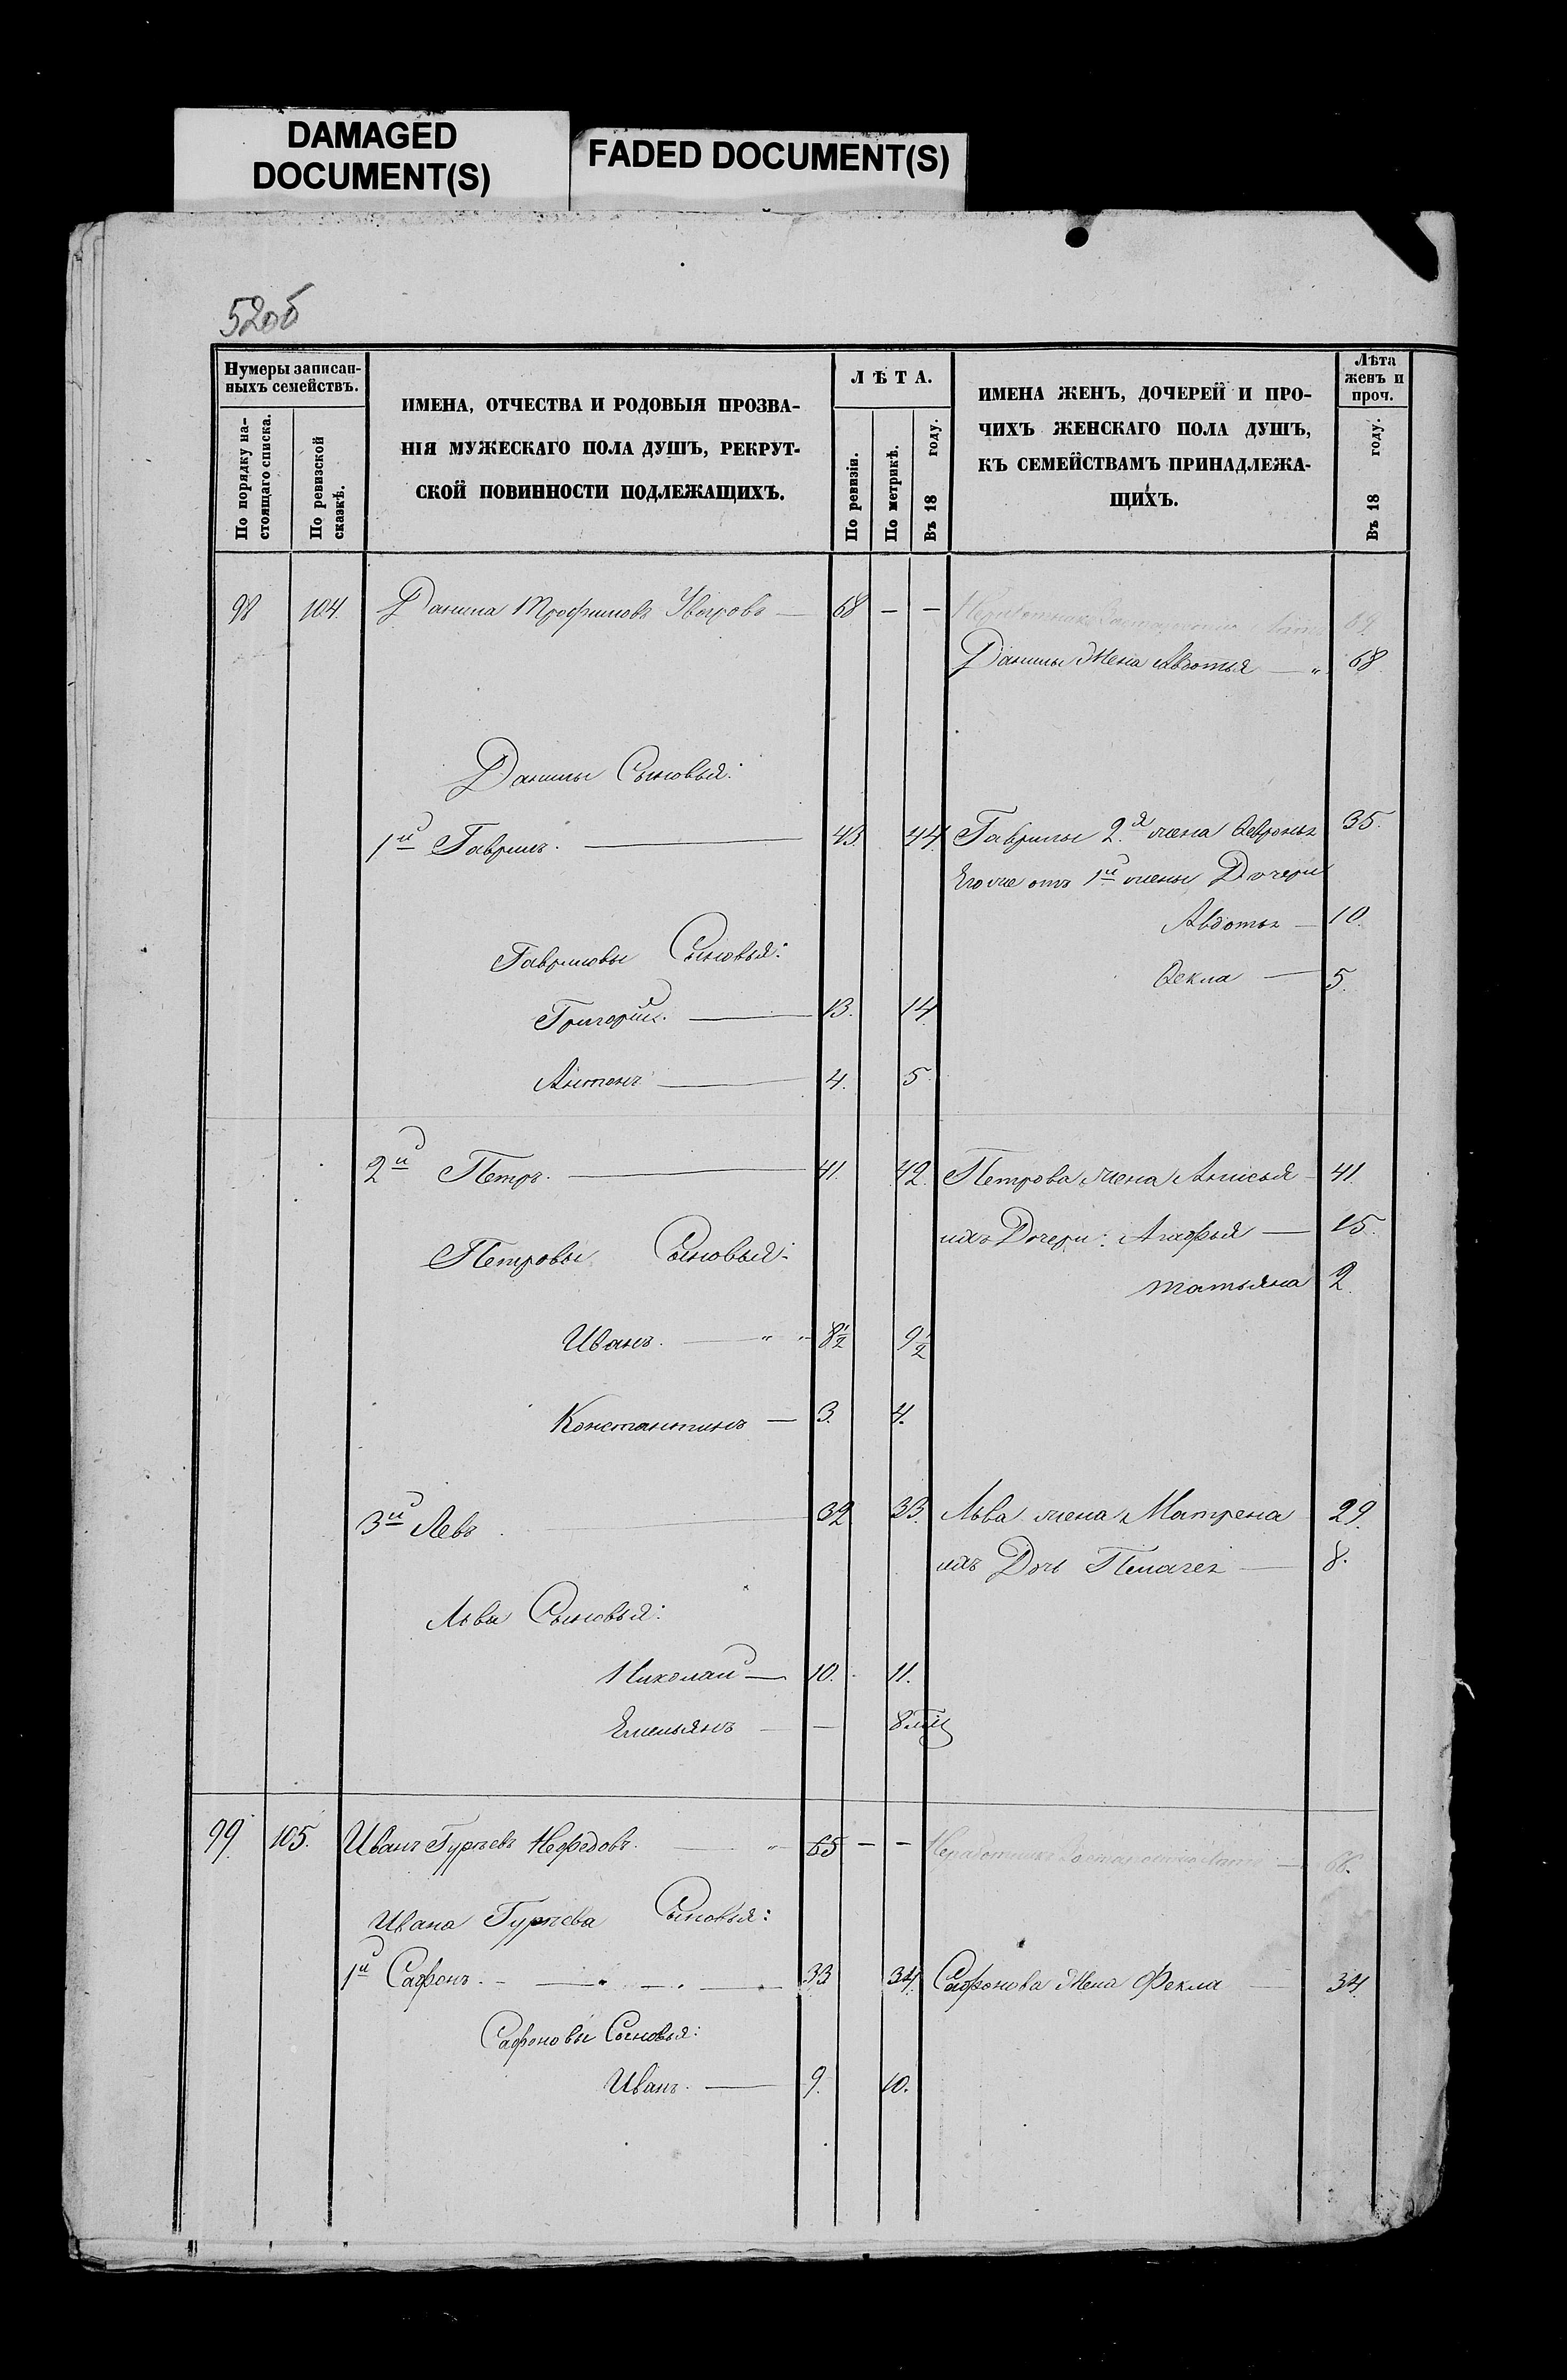 DAMAGED
DOCUMENT(S)
FADED DOCUMENT(S)
52об
Нумеры записан-
ныхъ семействъ.
По порядку на-
стоящаго списка.
По ревизской
сказкѣ.
ИМЕНА, ОТЧЕСТВА И РОДОВЫЯ ПРОЗВА-
НІЯ МУЖЕСКАГО ПОЛА ДУШЪ, РЕКРУТ-
СКОЙ ПОВИННОСТИ ПОДЛЕЖАЩИХЪ.
ЛѢТА.
По ревизіи.
По метрикѣ.
Въ 18 году.
ИМЕНА ЖЕНЪ, ДОЧЕРЕЙ И ПРО-
ЧИХЪ ЖЕНСКАГО ПОЛА ДУШЪ,
КЪ СЕМЕЙСТВАМЪ ПРИНАДЛЕЖА-
ЩИХЪ.
Лѣта
женъ и
проч.
Въ 18 году.
98 104. Данила Трофимовъ — 68 — — 69.
Данилы Жена Авдотья — " 68
Данилы Сыновья:
1й Гаврилъ. — 43. 44 Гаврилы 2.я жена Ѳевронья 35.
Его же отъ 1й жены Дочери
Авдотья — 10.
Гавриловы Сыновья:
Ѳекла — 5.
Григорій. — 13. 14.
Антонъ — 4. 5.
2й Петръ. — 41. 42. Петрова жена Анисья - 41.
ихъ Дочери: Агафья — 15.
Петровы Сыновья:
Татьяна 2.
Иванъ. — " " 8½ 9½
Константинъ — 3. 4.
3й Левъ 32 33. Льва жена Матрена 29.
ихъ Дочь Пелагея — 8.
Льва Сыновья:
Николай — 10. 11.
Емельянъ — — 8
99. 105. Иванъ Гурьевъ Нефедовъ. — " 65 — — Неработникъ — 66.
Ивана Гурьева Сыновья:
1й Сафонъ. — 33 34. Сафонова Жена Фекла — 34
Сафоновы Сыновья:
Иванъ. — 9. 10.